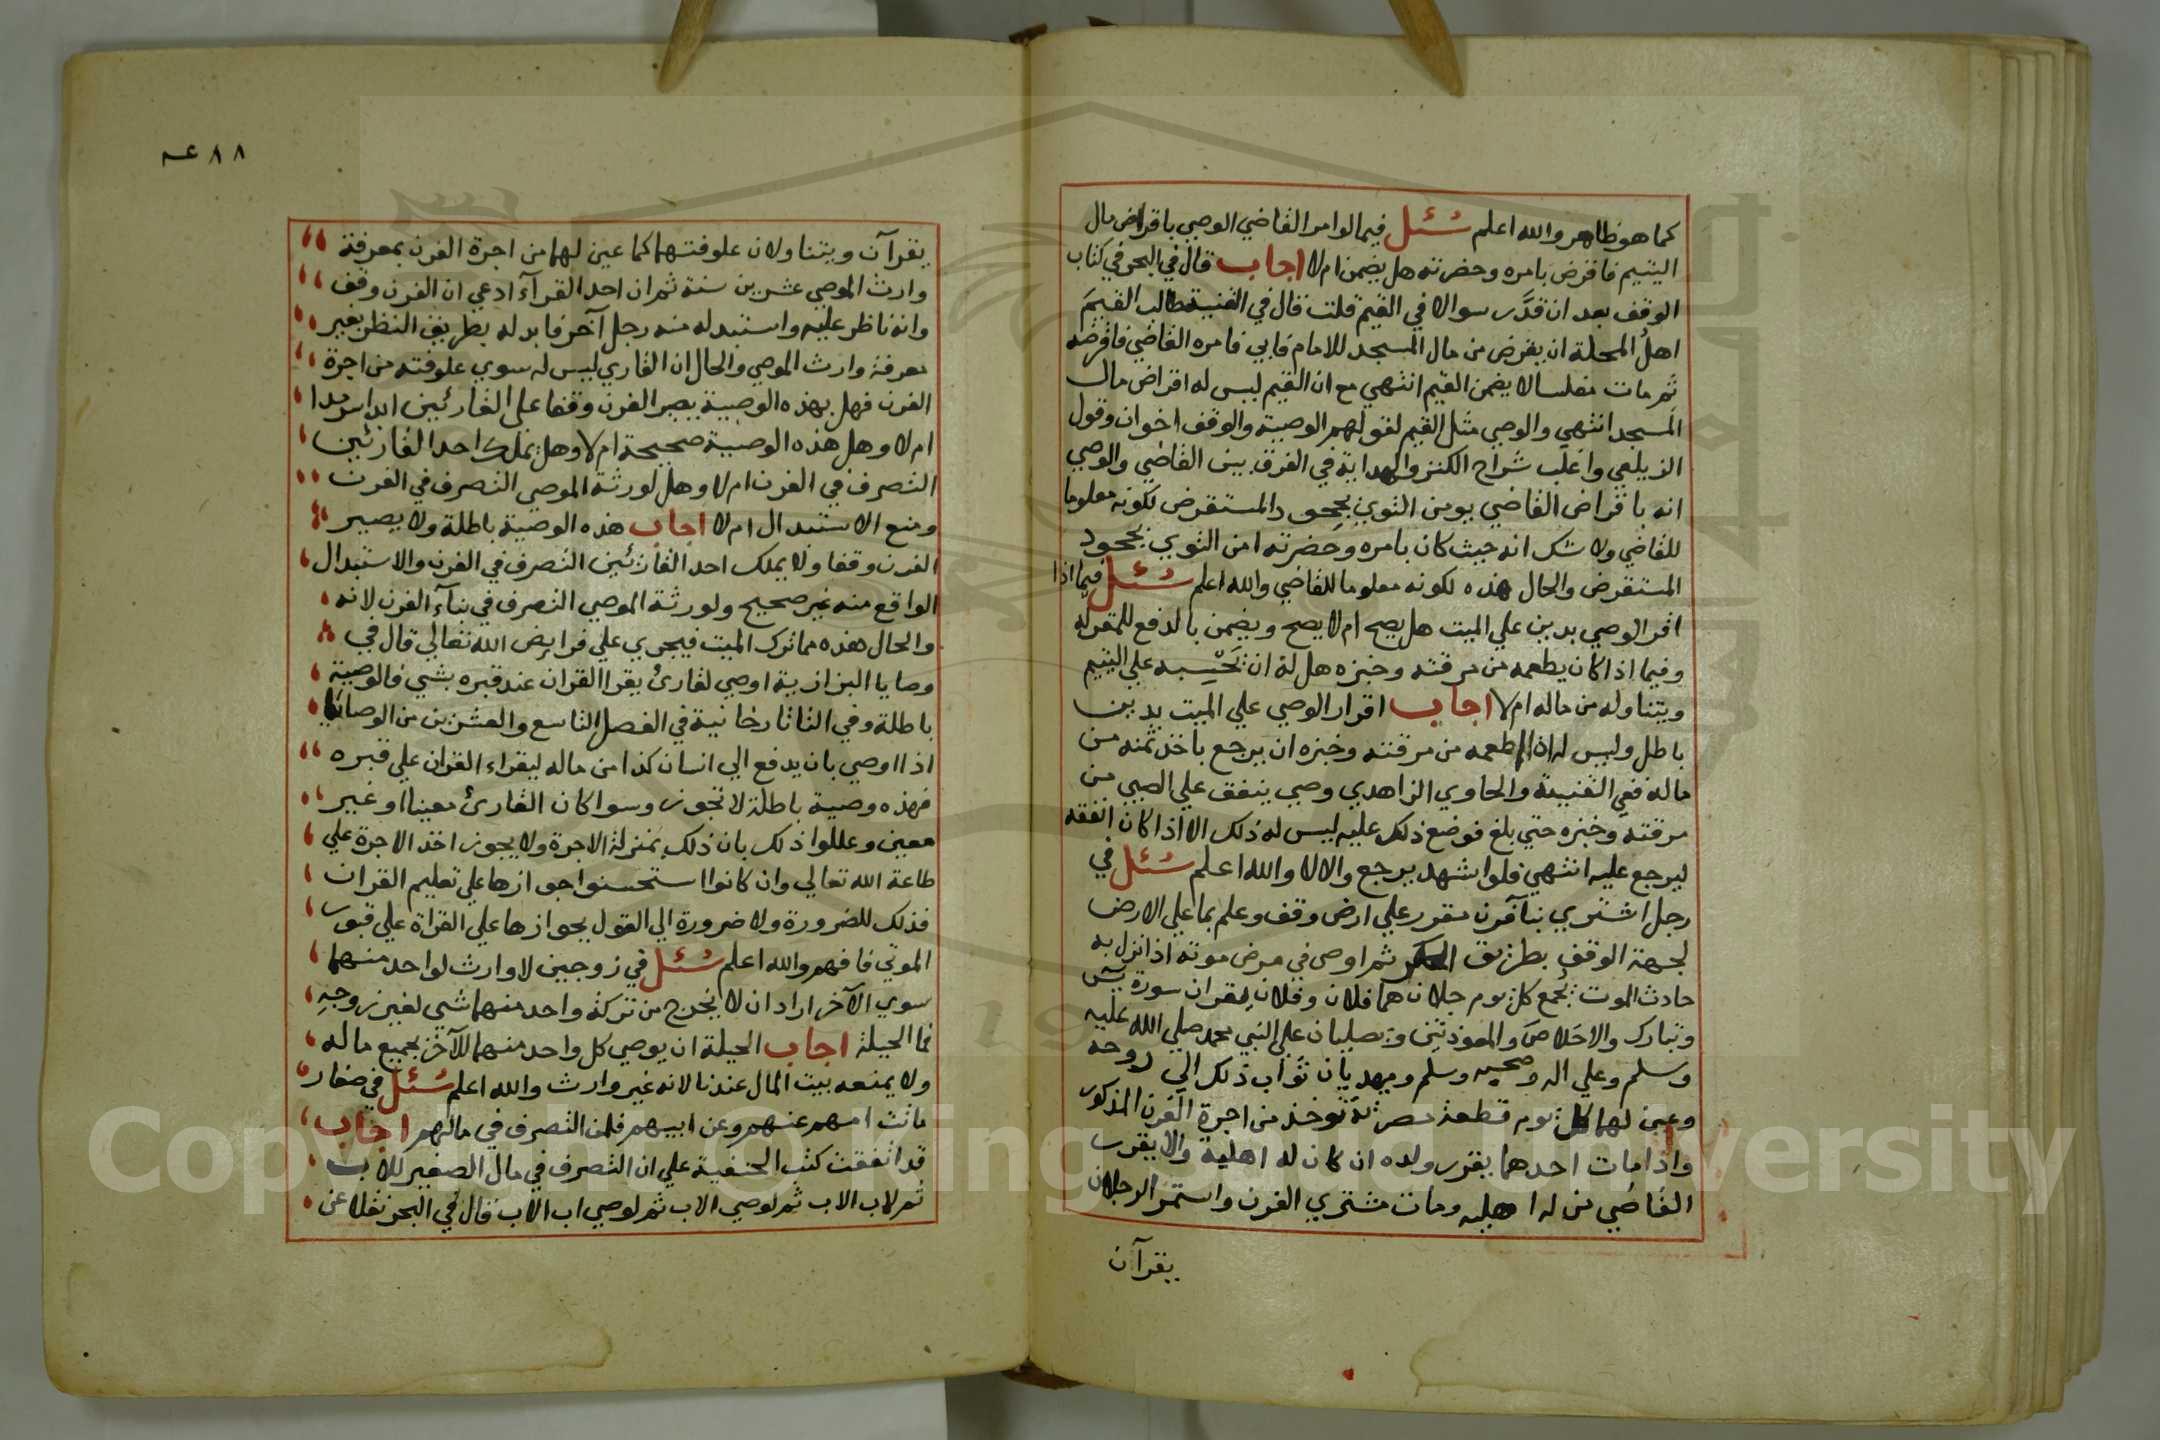 كما هو ظاهر والله اعلم سئل فيما لو امر القاضي الوصي باقراض مال
اليتيم فاقرض بامره وحضرته هل يضمن ام لا اجاب قال في البحر في كتاب
الوقف بعد ان قدر سوالا في القيم قلت قال في القنية طالب القيم
اهل المحلة ان يقرض من مال المسجد للامام فابي فامره القاضي فاقرضه
ثم مات مفلسا لا يضمن القيم انتهي مع ان القيم ليس له اقراض مال
المسجد انتهي والوصي مثل القيم لقولهم الوصية والوقف اخوان وقول
الزيلعي واغلب شراح الكنز والهداية في الفرق بين القاضي والوصي
انه باقراض القاضي يومن التوي بجحود المستقرض لكونه معلوما
للقاضي ولا شك انه حيث كان بامره وحضرته امن التوي بجحود
المستقرض والحال هذه لكونه معلوما للقاضي والله اعلم سئل فيما اذا
اقر الوصي بدين علي الميت هل يصح ام لا يصح ويضمن بالدفع للمقر له
وفيما اذا كان يطعمه من مرقته وخبزه هل له ان يحسبه علي اليتيم
ويتناوله من ماله ام لا اجاب اقرار الوصي علي الميت بدين
باطل وليس له اذا اطعمه من مرقته وخبزه ان يرجع باخذ ثمنه من
ماله ففي القنية والحاوي الزاهدي وصي ينفق علي الصبي من
مرقته وخبزه حتي بلغ فوضع ذلك عليه ليس له ذلك الا اذا كان انفقه
ليرجع عليه انتهي فلو اشهد يرجع والا لا والله اعلم سئل في
رجل اشتري بنا فرن مقرر علي ارض وقف وعلم بما علي الارض
لجهة الوقف بطريق الحكر ثم اوصي في مرض موته اذا نزل به
حادث الموت يجمع كل يوم رجلان هما فلان وفلان يقران سورة يس
وتبارك والاخلاص والمعوذتين ويصليان علي النبي محمد صلي الله عليه
وسلم وعلي اله وصحبه وسلم ويهديان ثواب ذلك الي روحه
وعين لهما كل يوم قطعة مصرية توخذ من اجرة الفرن المذكور
واذا مات احدهما يقرر ولده ان كان له اهلية والا يقرر
القاضي من له اهلية ومات مشتري الفرن واستمر الرجلان
يقرآن
٨٨
يقرآن ويتناولان علوفتهما كما عين لهما من اجرة الفرن بمعرفة
وارث الموصي عشرين سنة ثم ان احد القرآء ادعي ان الفرن وقف
وانه ناظر عليه واستبدله منه رجل آخر فابدله بطريق النظر بغير
معرفة وارث الموصي والحال ان القاري ليس له سوي علوفته من اجرة
الفرن فهل بهذه الوصية يصير الفرن وقفا علي القارئين ابدا سرمدا
ام لا وهل هذه الوصية صحيحة ام لا وهل يملك احد القارئين
التصرف في الفرن ام لا وهل لورثة الموصي التصرف في الفرن
ومنع الاستبدال ام لا اجاب هذه الوصية باطلة ولا يصير
الفرن وقفا ولا يملك احد القارئين التصرف في الفرن والاستبدال
الواقع منه غير صحيح ولورثة الموصي التصرف في بنآء الفرن لانه
والحال هذه مما ترك الميت فيجري علي فرايض الله تعالي قال في
وصايا البزازية اوصي لقارئ يقرا القران عند قبره بشي فالوصية
باطلة وفي التاتارخانية في الفصل التاسع والعشرين من الوصايا
اذا اوصي بان يدفع الي انسان كذا من ماله ليقراء القران علي قبره
فهذه وصية باطلة لا تجوز وسوا كان القارئ معينا او غير
معين وعللوا ذلك بان ذلك بمنزلة الاجرة ولا يجوز اخذ الاجرة علي
طاعة الله تعالي وان كانوا استحسنوا جوازها علي تعليم القران
فذلك للضرورة ولا ضرورة الي القول بجوازها علي القراة علي قبور
الموتي فافهم والله اعلم سئل في زوجين لا وارث لواحد منهما
سوي الآخر اراد ان لا يخرج من تركة واحد منهما شي لغير زوجه
فما الحيلة اجاب الحيلة ان يوصي كل واحد منهما للآخر بجميع ماله
ولا يمنعه بيت المال عندنا لانه غير وارث والله اعلم سئل في صغار
ماتت امهم عنهم وعن ابيهم فلمن التصرف في مالهم اجاب
قد اتفقت كتب الحنفية علي ان التصرف في مال الصغير للاب
ثم لاب الاب ثم لوصي الاب ثم لوصي اب الاب قال في البحر نقلا عن
Copyright © King Saud University